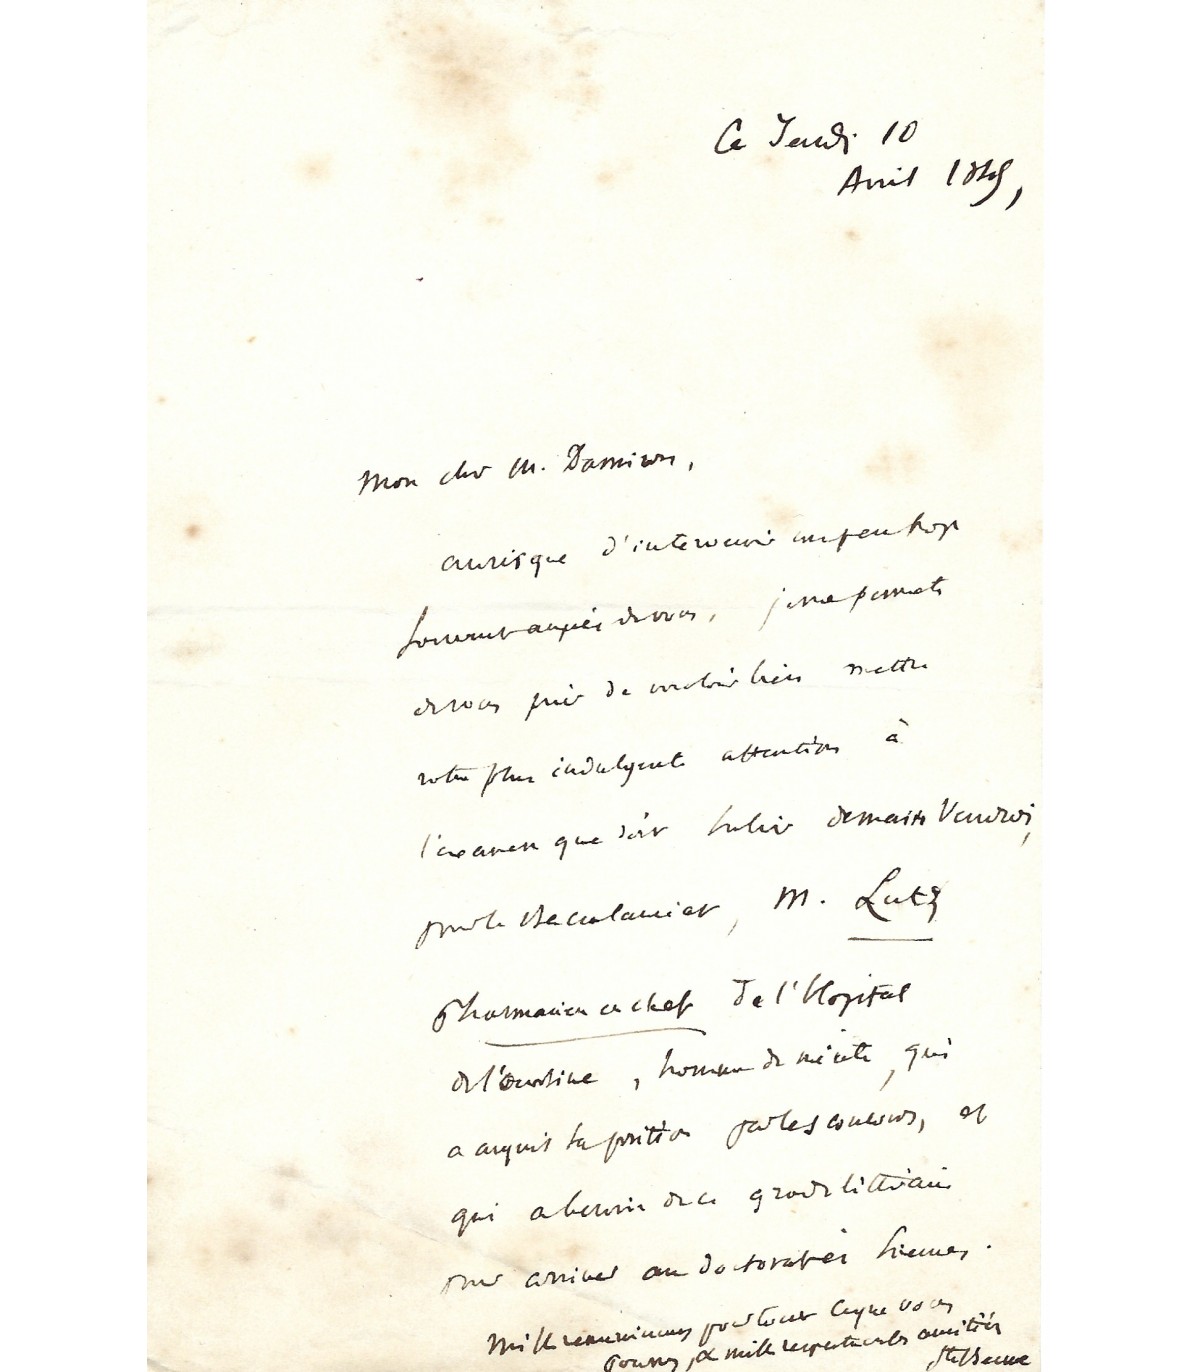 Ce Jeudi 10
Avril 1845,
Mon cher M. Damiron,
au risque d'intervenir un peu trop
souvent auprès de vous, je me permets
de vous prier de vouloir bien mettre
votre plus indulgente attention à
l'examen que doit subir demain Vendredi,
pour le Baccalauréat, M. Lutz
pharmacien en chef de l'Hôpital
de l'Oursine, homme de mérite, qui
a acquis sa position par les concours, et
qui a besoin de ce grade littéraire
pour arriver au doctorat ès sciences.
Mille remerciemens pour tout ce que vous
pourrez, & mille respectueuses amitiés
Ste Beuve